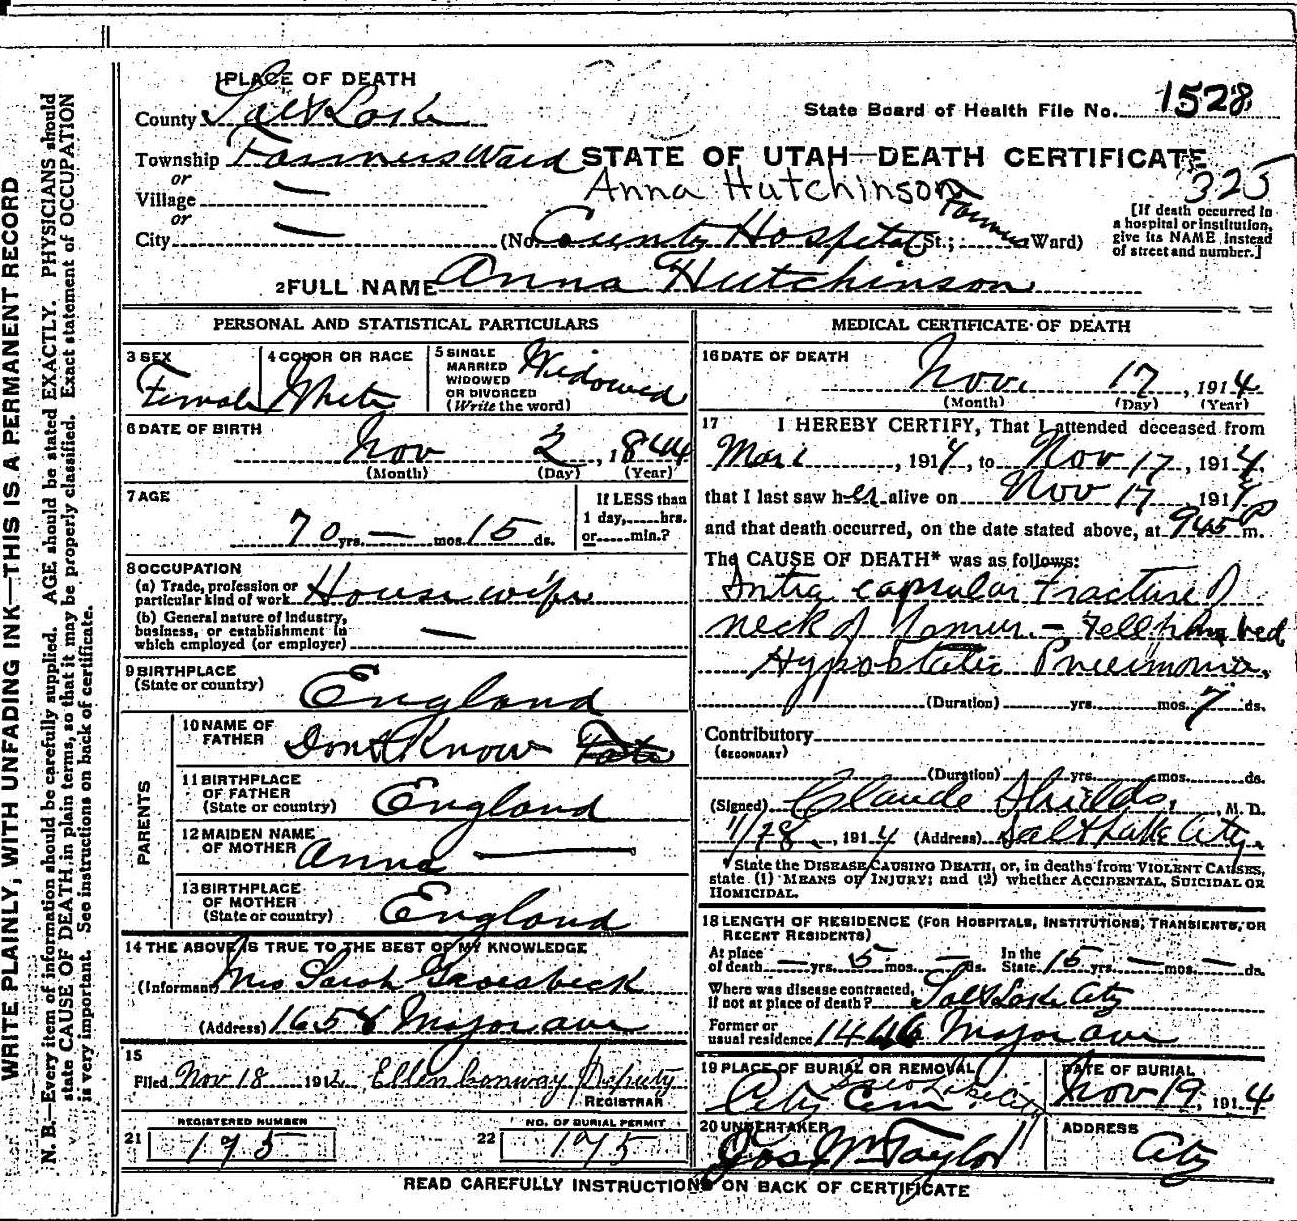 WRITE PLAINLY, WITH UNFADING INK—THIS IS A PERMANENT RECORD
N. B.—Every item of information should be carefully supplied. AGE should be stated EXACTLY. PHYSICIANS should
state CAUSE OF DEATH in plain terms, so that it may be properly classified. Exact statement of OCCUPATION
is very important. See instructions on back of certificate.
1 PLACE OF DEATH
County Salt Lake
State Board of Health File No. 1528
Township Farmers Ward
STATE OF UTAH—DEATH CERTIFICATE
or
Village —
Anna Hutchinson
325
or
City —
(No. County Hospital St.; Farmers Ward)
[If death occurred in
a hospital or institution,
give its NAME instead
of street and number.]
2 FULL NAME Anna Hutchinson
PERSONAL AND STATISTICAL PARTICULARS
3 SEX
Female
4 COLOR OR RACE
White
5 SINGLE
MARRIED
WIDOWED
OR DIVORCED
(Write the word)
Widowed
6 DATE OF BIRTH
Nov 2, 1844
(Month) (Day) (Year)
7 AGE
70 yrs. — mos. 15 ds.
If LESS than
1 day, hrs.
or min.?
8 OCCUPATION
(a) Trade, profession or
particular kind of work House wife
(b) General nature of Industry,
business, or establishment in
which employed (or employer) —
9 BIRTHPLACE
(State or country) England
PARENTS
10 NAME OF
FATHER Dont Know
11 BIRTHPLACE
OF FATHER
(State or country) England
12 MAIDEN NAME
OF MOTHER Anna —
13 BIRTHPLACE
OF MOTHER
(State or country) England
14 THE ABOVE IS TRUE TO THE BEST OF MY KNOWLEDGE
(Informant Mrs Sarah Groesbeck
(Address) 1658 Major ave
15
Filed Nov 18 191 Ellen Conway Deputy
REGISTRAR
21 REGISTERED NUMBER
195
22 NO. OF BURIAL PERMIT
195
MEDICAL CERTIFICATE OF DEATH
16 DATE OF DEATH
Nov. 17, 1914
(Month) (Day) (Year)
17 I HEREBY CERTIFY, That I attended deceased from
, 1914, to Nov 17, 1914,
that I last saw her alive on Nov 17, 1914
and that death occurred, on the date stated above, at 945 P m.
The CAUSE OF DEATH* was as follows:
Intra capsular fracture of
neck of femur. — Fell from bed
Hypostatic Pneumonia.
(Duration) yrs. mos. 7 ds.
Contributory
(SECONDARY)
(Duration) yrs. mos. ds.
(Signed) Claude Shields, M. D.
11/18, 1914 (Address) Salt Lake City.
* State the DISEASE CAUSING DEATH, or, in deaths from VIOLENT CAUSES,
state (1) MEANS OF INJURY; and (2) whether ACCIDENTAL, SUICIDAL OR
HOMICIDAL.
18 LENGTH OF RESIDENCE (FOR HOSPITALS, INSTITUTIONS, TRANSIENTS, OR
RECENT RESIDENTS)
At place
of death — yrs. 5 mos. — ds. In the
State 15 yrs. — mos. — ds.
Where was disease contracted,
if not at place of death? Salt Lake City
Former or
usual residence 1446 Major ave
19 PLACE OF BURIAL OR REMOVAL
City Cem Salt Lake City
DATE OF BURIAL
Nov 19, 1914
20 UNDERTAKER
Jos Wm Taylor
ADDRESS
City
READ CAREFULLY INSTRUCTIONS ON BACK OF CERTIFICATE